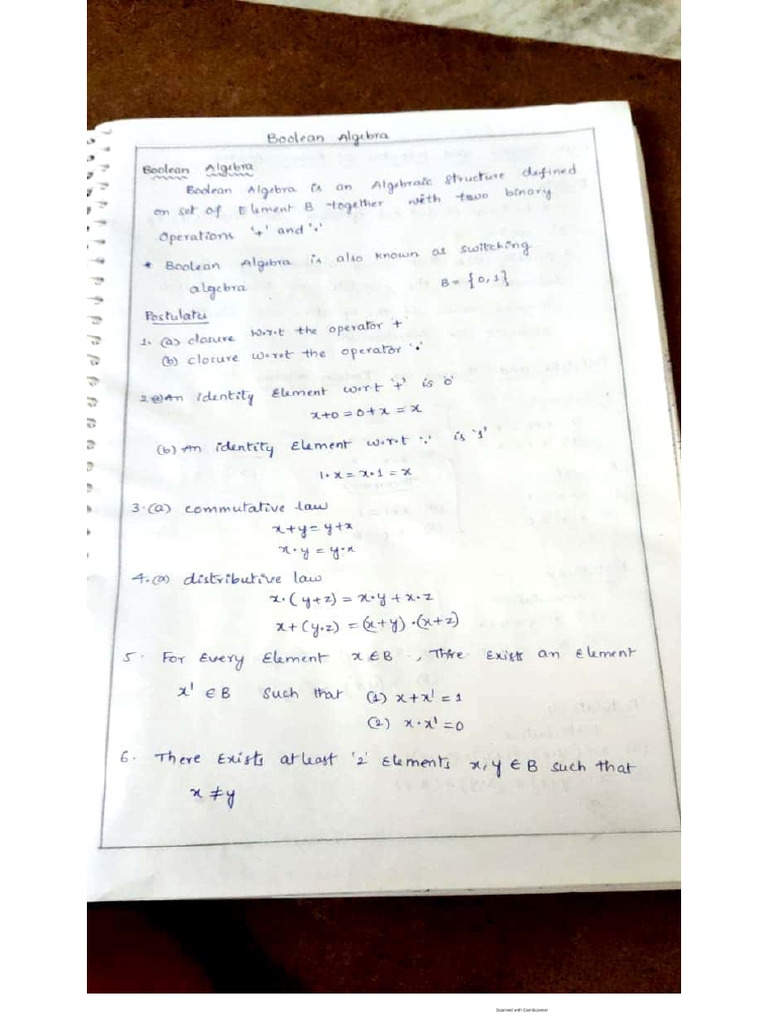 Boolean Algebra
Boolean Algebra
Boolean Algebra is an Algebraic structure defined
on set of Element B together with two binary
Operations '+' and '.'
* Boolean Algebra is also known as switching
algebra B = {0,1}
Postulates
1. (a) closure w.r.t the operator +
(b) closure w.r.t the operator '.'
2.(a) An Identity Element w.r.t '+' is '0'
x+0 = 0+x = x
(b) An identity Element w.r.t '.' is '1'
1.x = x.1 = x
3.(a) commutative law
x+y = y+x
x.y = y.x
4.(a) distributive law
x.(y+z) = x.y + x.z
x+(y.z) = (x+y).(x+z)
5. For Every Element x ∈ B, There Exists an Element
x' ∈ B such that (1) x+x' = 1
(2) x.x' = 0
6. There Exists at least '2' Elements x, y ∈ B such that
x ≠ y
Scanned with CamScanner